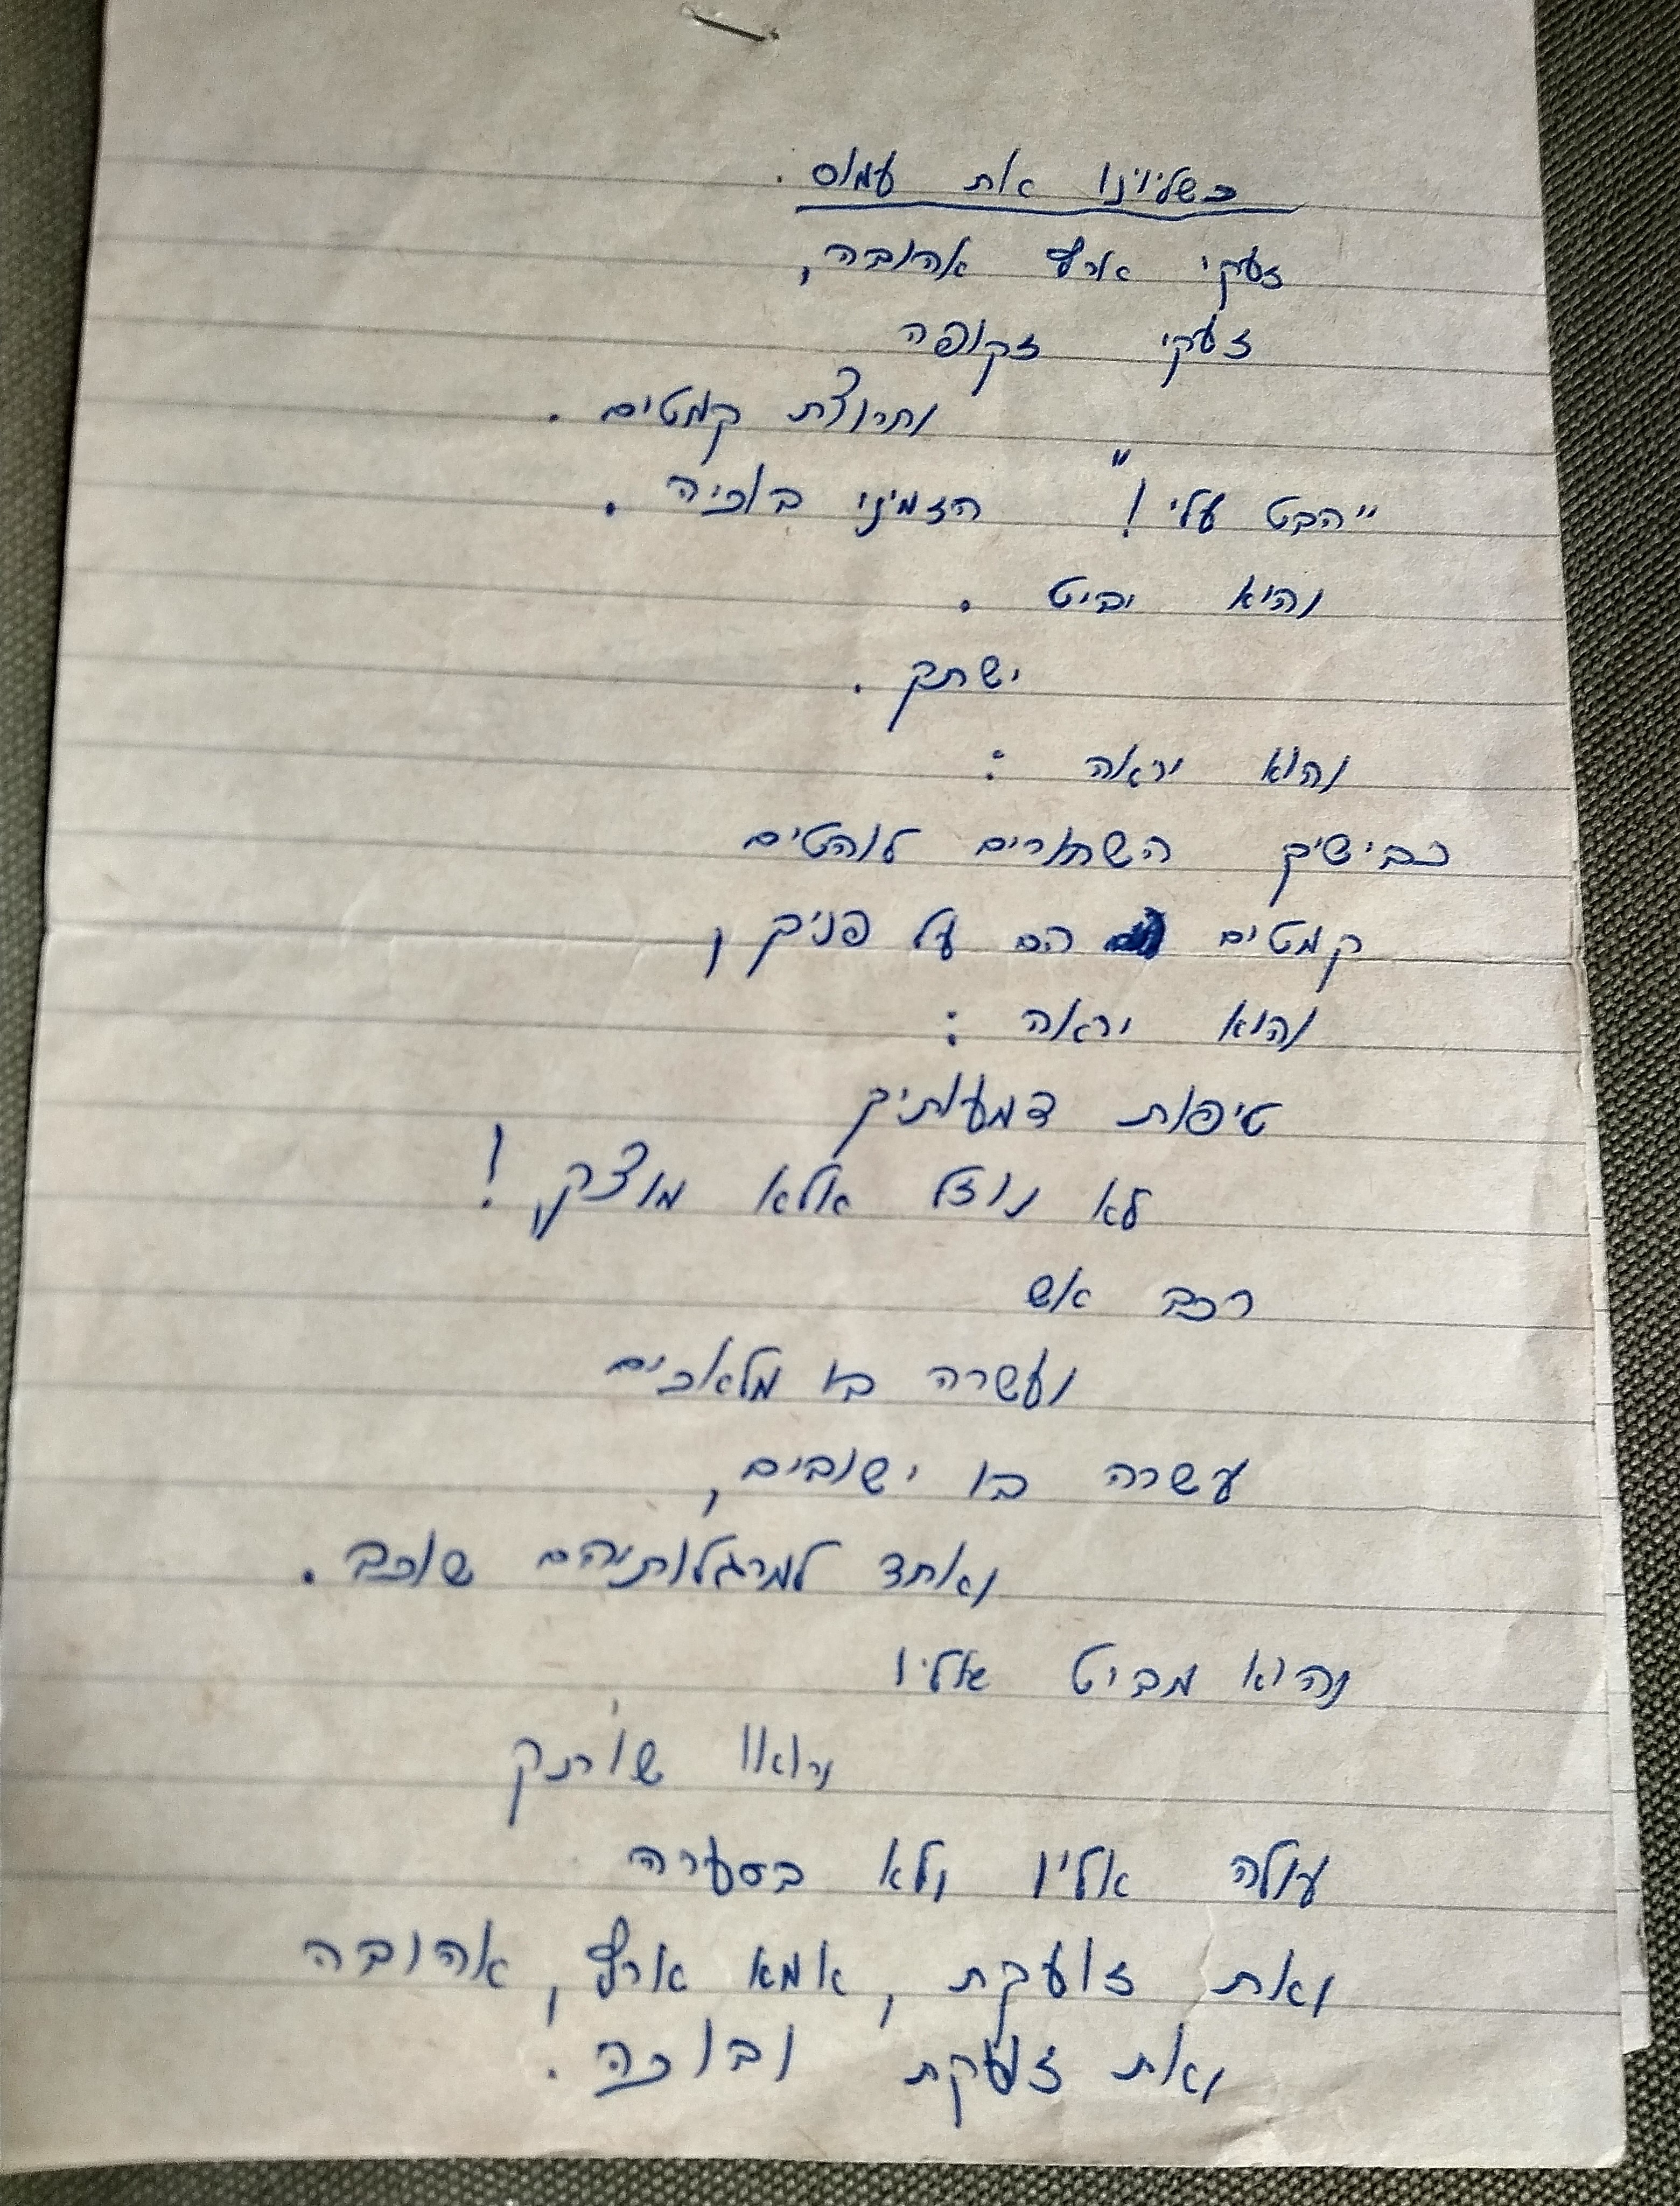 כשליוינו את עמוס.
זעקי ארץ אהובה,
זעקי זקופה
וחרוצת קמטים.
"הבט עלי!" הזמיני בוכיה.
והוא יביט.
ישתק.
והוא יראה:
כבישיך השחורים לוהטים
קמטים הם על פניך,
והוא יראה:
טיפות דמעותיך
לא נוזל אלא מוצק,!
רכב אש
ועשרה בו מלאכים
עשרה בו ישובים,
ואחד למרגלותיהם שוכב.
והוא מביט אליו
וראו שותק
עולה אליו ולא בסערה
ואת זועקת, אמא ארץ, אהובה
ואת זועקת ובוכה.